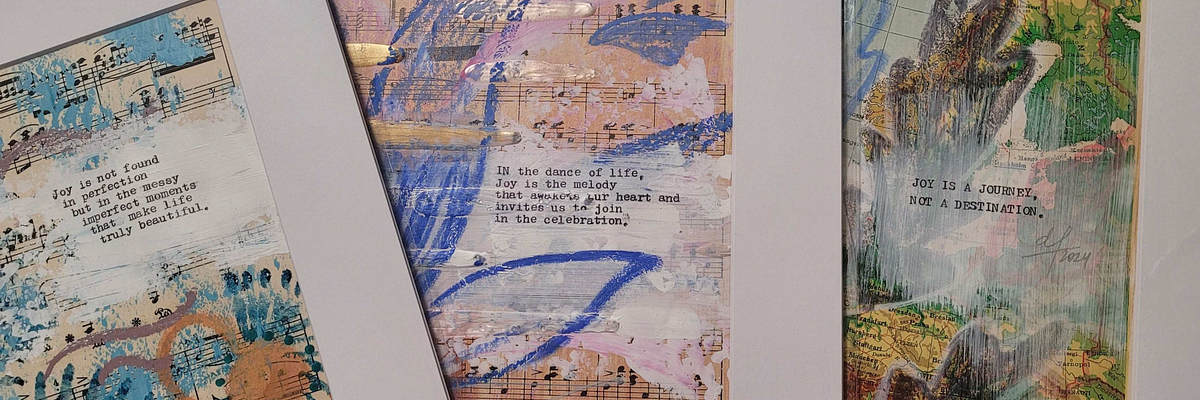 Joy is not found
in perfection
but in the messy
imperfect moments
that make life
truly beautiful.
IN the dance of life,
Joy is the melody
that awakens our heart and
invites us to join
in the celebration.
JOY IS A JOURNEY,
NOT A DESTINATION.
2024